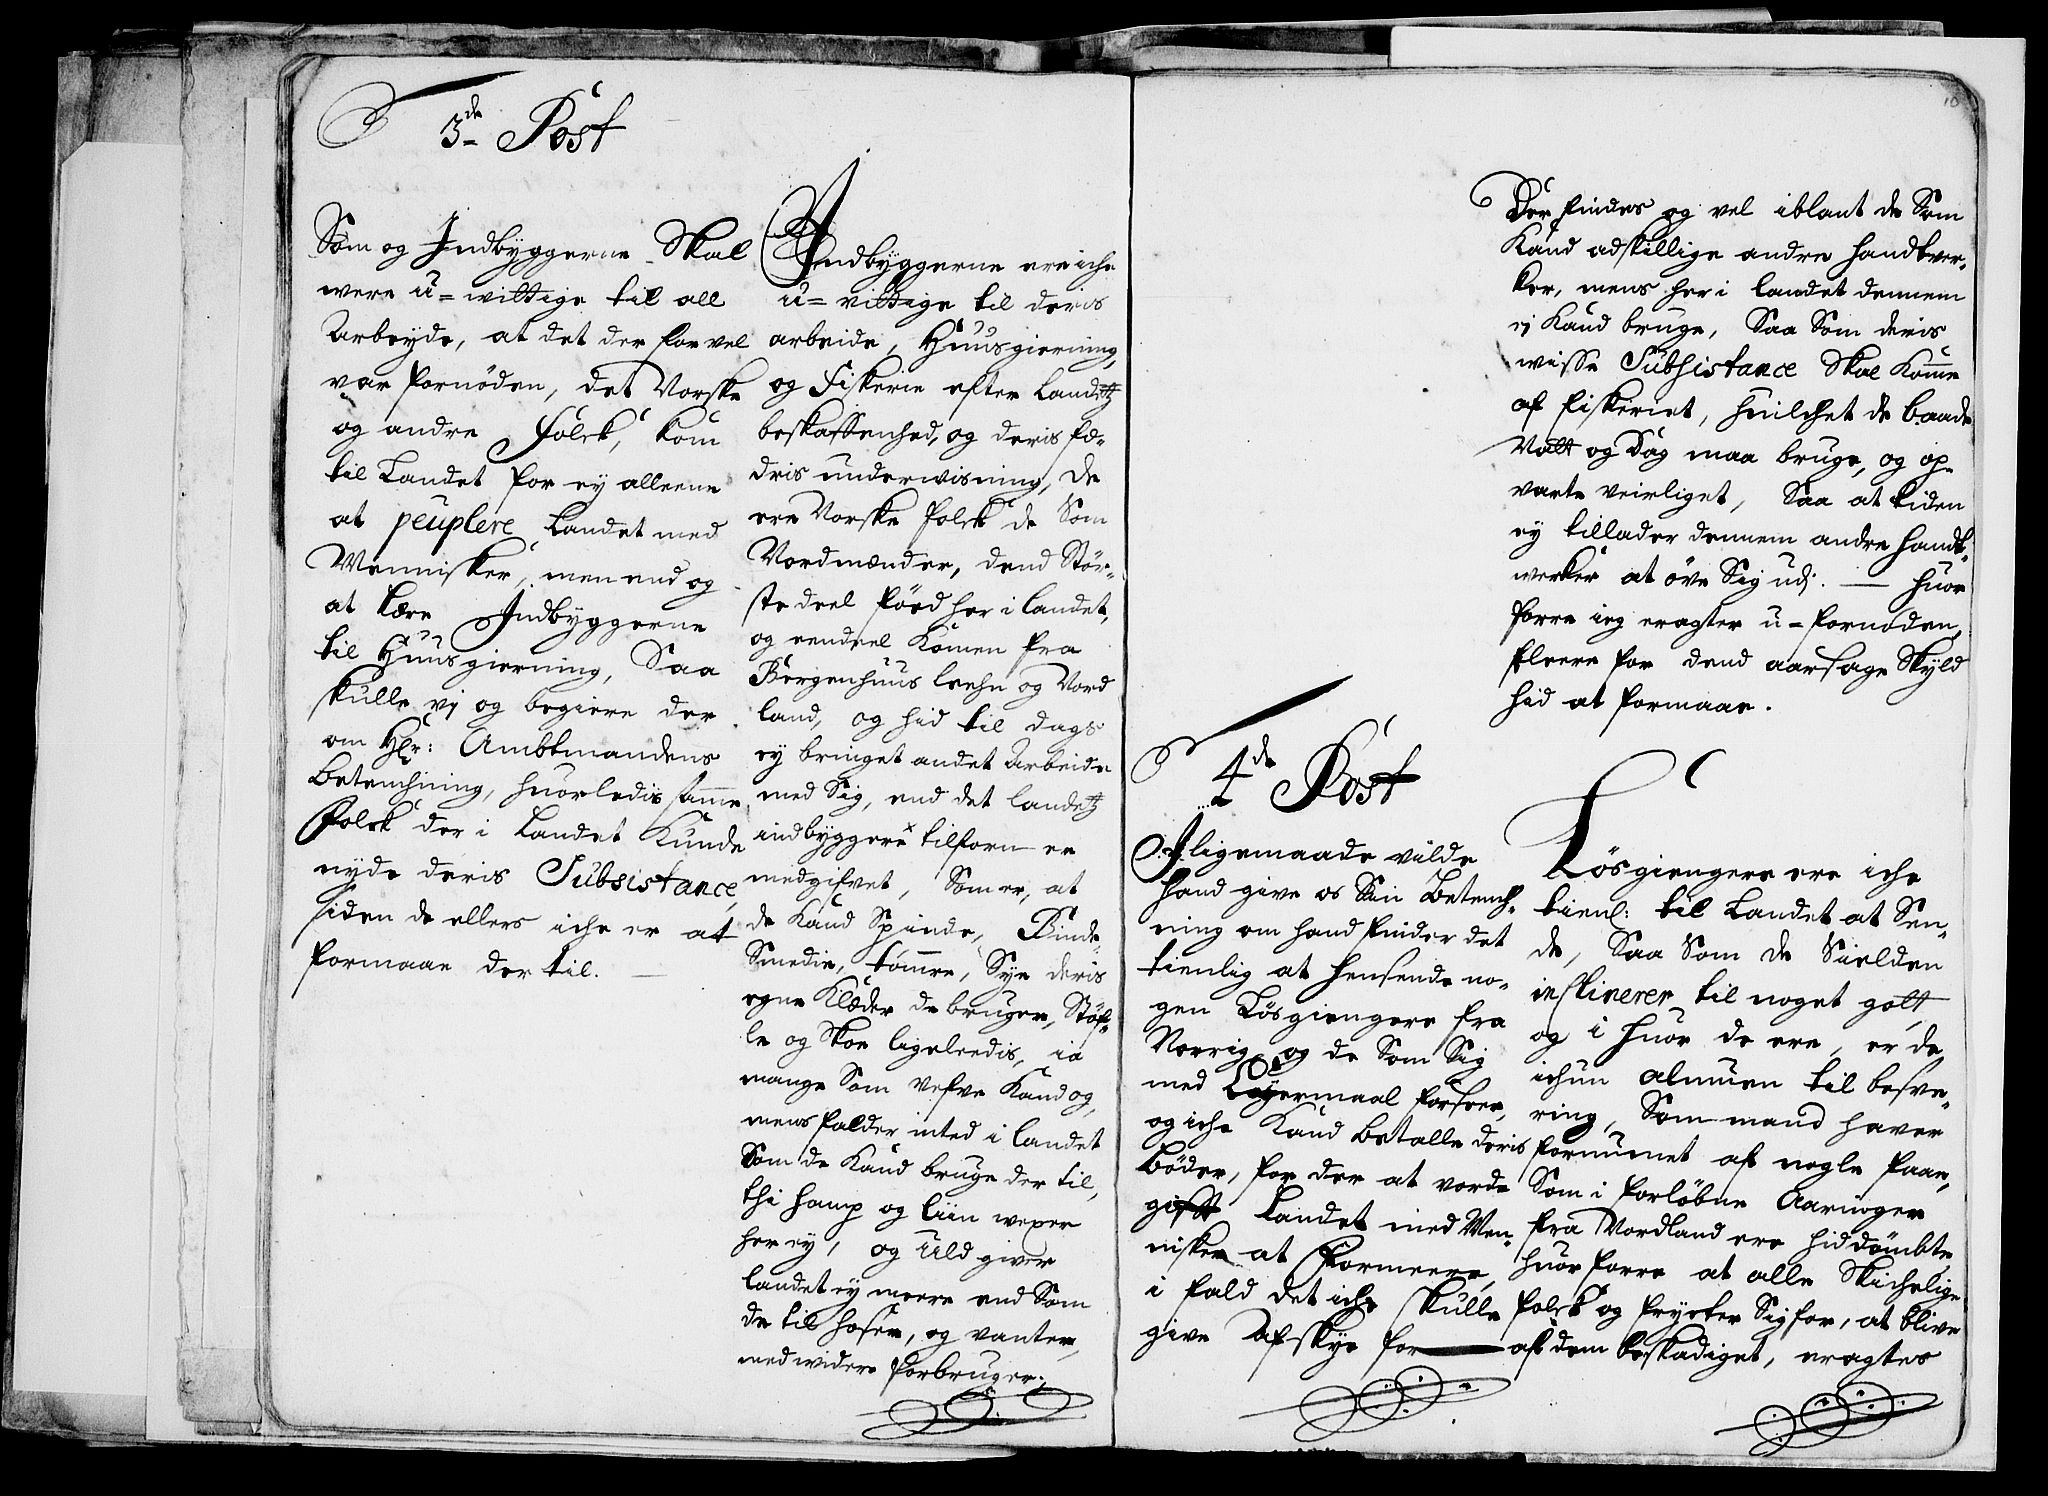 3de Post
Som og Indbyggerne Skal
were u=wittige til all
Arbeyde, at det der for vel
var fornøden, det Norske
og andre Folck, kom
til Landet for ey alleene
at peuplere Landet med
Mennisker, men end og
at lære Indbyggerne
til Huusgierning, Saa
skulle vj og begiere der
om Hr: Ambtmandens
Betenchning, huorledis samme
Folck der i Landet Kunde
nyde deris Subsistance,
siden de ellers iche er at
formaae der til.
Indbyggerne ere iche
u=vittige til deris
arbeide, Huusgierning,
og Fiskerie efter Landetz
beskaffenhed, og deris fæ-
dris underwisning, de
ere Norske folck de Som
Nordmænder, dend Stør-
ste deel fød her i landet,
og eendeel Komen fra
Bergenhuus leehn og Nord
land, og hid til dags
ey bringet andet Arbeide
med Sig, end det landetz
indbyggere tilforn er
medgifvet, Som er, at
de Kand Spinde, Binde,
Smedie, tømre, Sye deris
egne Klæder de bruger, Støf-
le og Skoe ligeleedis, ia
mange Som Vefve Kand og,
mens falder inted i landet
Som de Kand bruge der til,
thi hamp og liin wexer
her ey, og Uld giver
landet ey meere end Som
de til hoser, og vanter,
med widere forbruger.
10
Der findes og vel iblant de Som
Kand adskillige andre handtver-
ker, mens her i landet dennem
ej Kand bruge, Saa Som deris
wisse Subsistance Skal Komme
af fiskeriet, huilchet de baade
Natt og Dag maa bruge, og op-
varte veirliget, Saa at tiden
ey tillader dennem andre handt-
werker at øve Sig udj. — huor
forre ieg eragter u=fornøden,
fleere for dend aarsage Skyld
hid at formaae.
4de Post
Iligemaade vilde
hand give os Sin Betench-
ning om hand finder det
tienlig at hensende no-
gen Løsgiengere fra
Norrig, og de Som Sig
med Leyermaal forseer,
og iche Kand betalle deris
bøder, for der at vorde
gifft Landet med Men-
nisker at formeere,
i fald det iche skulle
give Afskye for
Løsgiengere ere iche
tienl: til Landet at Sen-
de, Saa Som de Sielden
inclinerer til noget gott,
og i huor de ere, er de
ichun almuen til besve-
ring, Som mand haver
fornumet af nogle faae,
Som i forløbne Aaringer
fra Nordland ere hid dømbte,
huor forre at alle Skichelige
folck og frycter Sig for, at blive
af dem beskadiget, eragtes